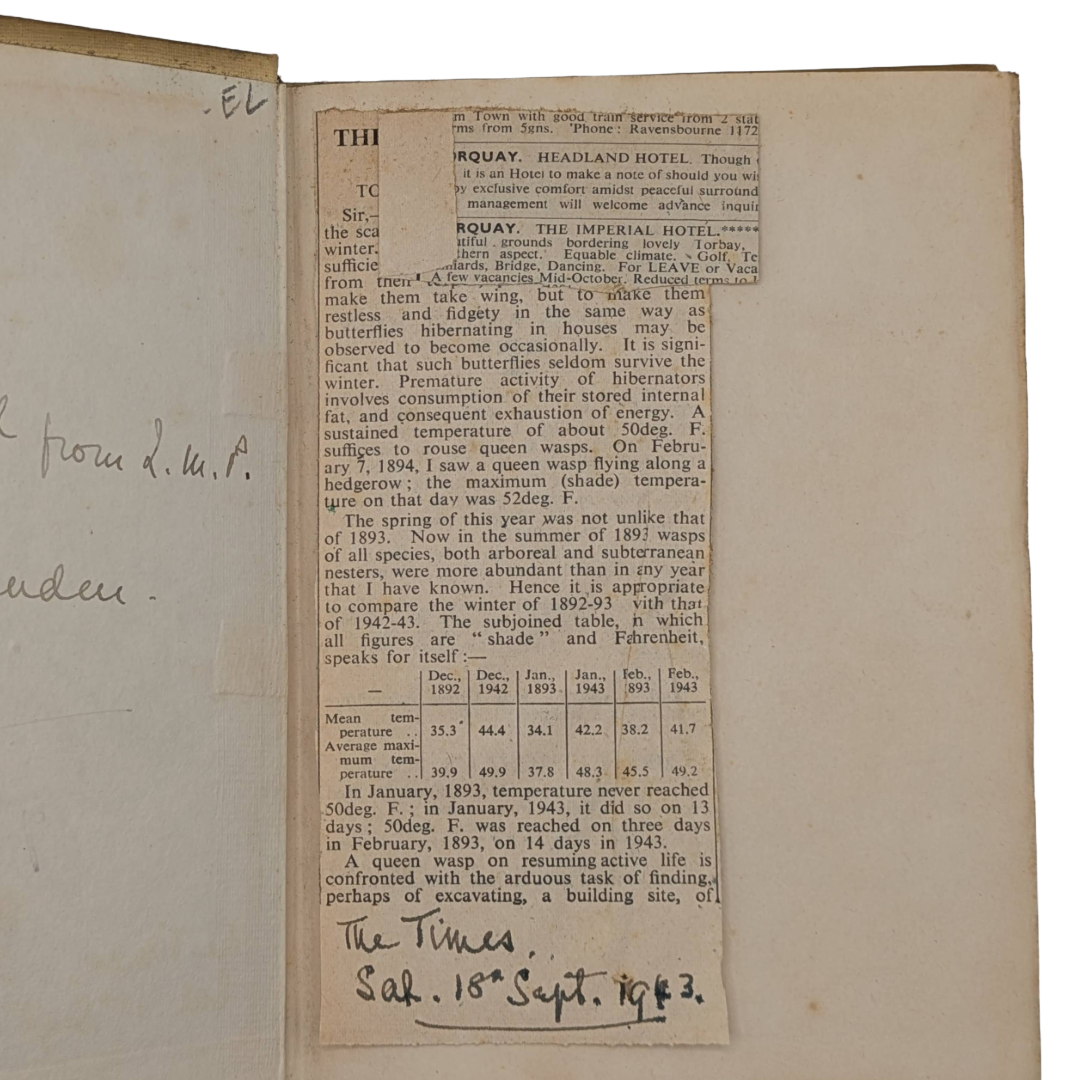 EL
from L.M.P.
m Town with good train service from 2 stat
ms from 5gns. 'Phone: Ravensbourne 1172
RQUAY. HEADLAND HOTEL. Though
it is an Hotel to make a note of should you wi
by exclusive comfort amidst peaceful surround
management will welcome advance inqui
RQUAY. THE IMPERIAL HOTEL.*****
tiful grounds bordering lovely Torbay,
thern aspect. Equable climate. Golf, Te
iards, Bridge, Dancing. For LEAVE or Vaca
A few vacancies Mid-October. Reduced terms to
THE
TO
Sir,—
the sca
winter.
sufficie
from their
make them take wing, but to make them
restless and fidgety in the same way as
butterflies hibernating in houses may be
observed to become occasionally. It is signi-
ficant that such butterflies seldom survive the
winter. Premature activity of hibernators
involves consumption of their stored internal
fat, and consequent exhaustion of energy. A
sustained temperature of about 50deg. F.
suffices to rouse queen wasps. On Febru-
ary 7, 1894, I saw a queen wasp flying along a
hedgerow; the maximum (shade) tempera-
ture on that day was 52deg. F.
The spring of this year was not unlike that
of 1893. Now in the summer of 1893 wasps
of all species, both arboreal and subterranean
nesters, were more abundant than in any year
that I have known. Hence it is appropriate
to compare the winter of 1892-93 with that
of 1942-43. The subjoined table, in which
all figures are "shade" and Fahrenheit,
speaks for itself:—
— Dec., 1892 Dec., 1942 Jan., 1893 Jan., 1943 Feb., 1893 Feb., 1943
Mean tem-
perature .. 35.3 44.4 34.1 42.2 38.2 41.7
Average maxi-
mum tem-
perature .. 39.9 49.9 37.8 48.3 45.5 49.2
In January, 1893, temperature never reached
50deg. F.; in January, 1943, it did so on 13
days; 50deg. F. was reached on three days
in February, 1893, on 14 days in 1943.
A queen wasp on resuming active life is
confronted with the arduous task of finding,
perhaps of excavating, a building site, of
The Times.
Sat. 18th Sept. 1943.